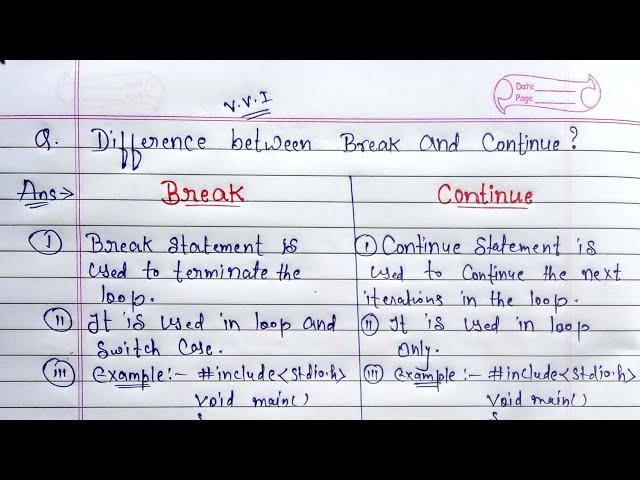 V.V.I
Date
Page
Q. Difference between Break and Continue?
Ans→ Break Continue
(i) Break Statement is
used to terminate the
loop.
(ii) It is used in loop and
Switch Case.
(iii) Example:- #include<stdio.h>
void main()
{
(i) Continue Statement is
used to Continue the next
iterations in the loop.
(ii) It is used in loop
only.
(iii) Example:- #include<stdio.h>
void main()
{